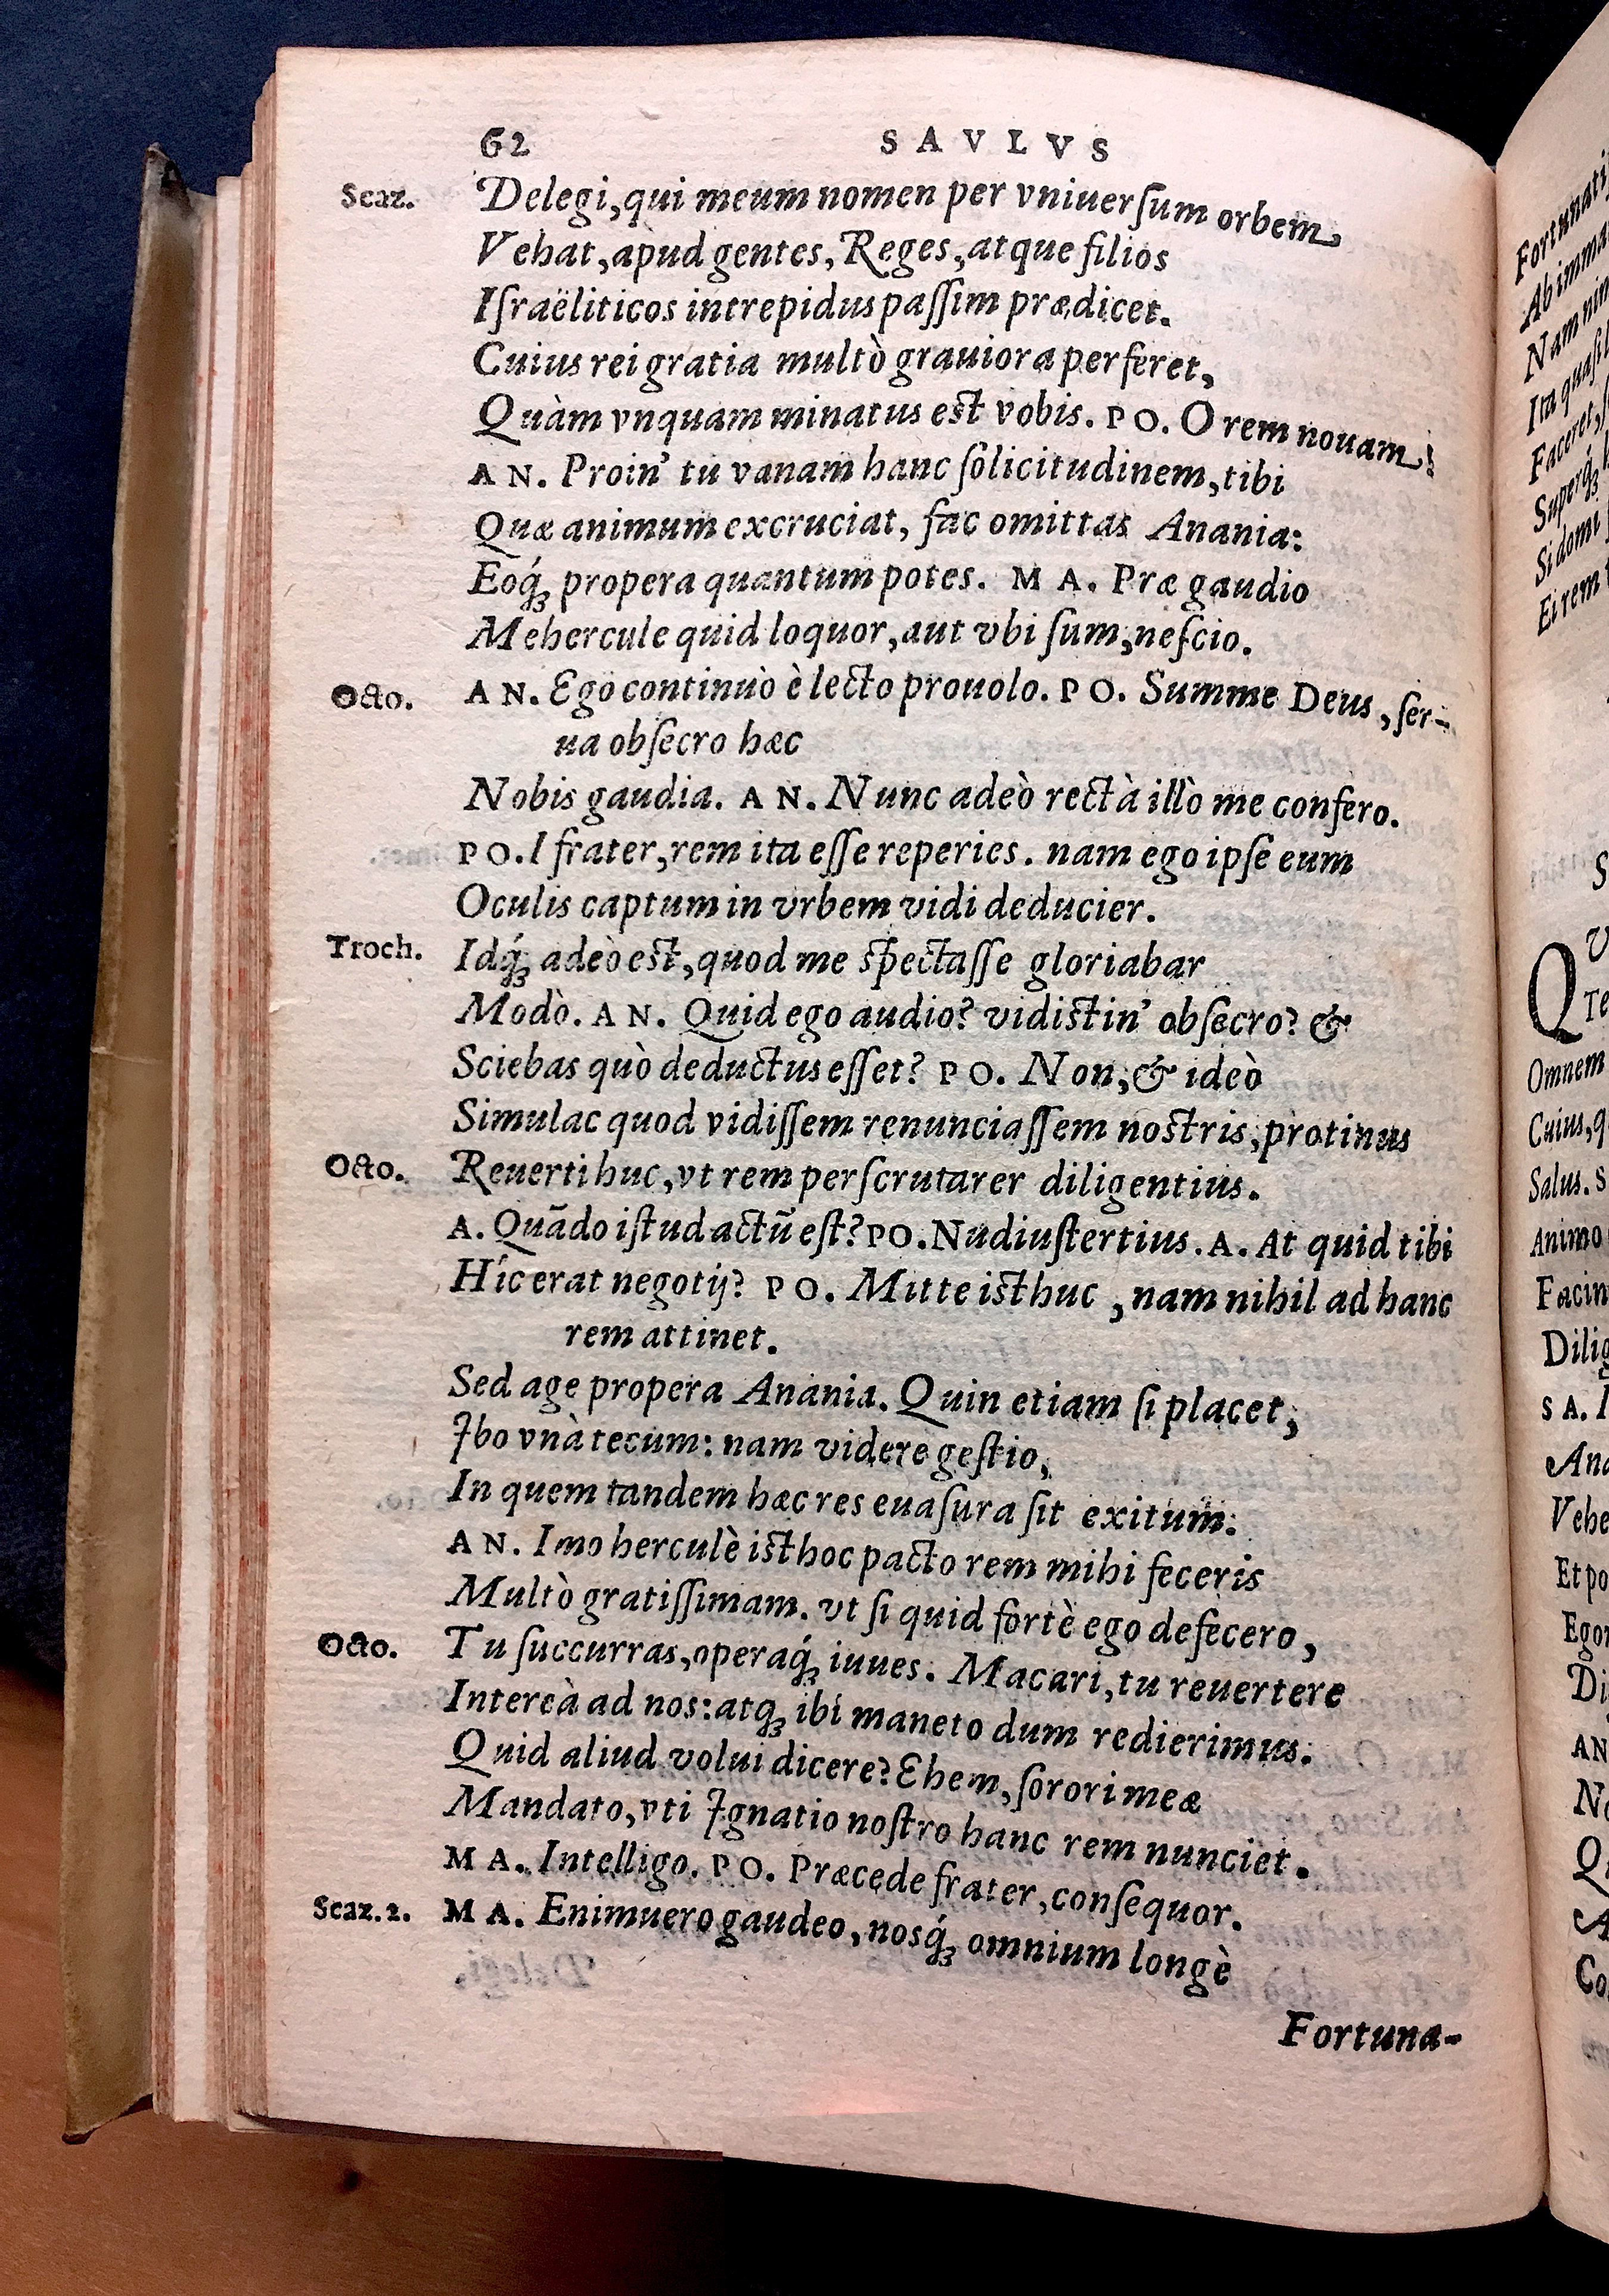 62 SAVLVS
Scaz. Delegi, qui meum nomen per vniuerſum orbem
Vehat, apud gentes, Reges, atque filios
Iſraëliticos intrepidus paſſim prædicet.
Cuius rei gratia multò grauiora perferet,
Quàm vnquam minatus est vobis. PO. O rem nouam!
AN. Proin' tu vanam hanc ſolicitudinem, tibi
Quæ animum excruciat, fac omittas Anania:
Eoq́ꝫ propera quantum potes. MA. Præ gaudio
Mehercule quid loquor, aut vbi ſum, neſcio.
Octo. AN. Ego continuò è lecto prouolo. PO. Summe Deus, ſer-
ua obſecro hæc
Nobis gaudia. AN. Nunc adeò rectà illò me confero.
PO. I frater, rem ita eſſe reperies. nam ego ipſe eum
Oculis captum in vrbem vidi deducier.
Troch. Idq́ꝫ adeò est, quod me spectaſſe gloriabar
Modò. AN. Quid ego audio? vidistin' obſecro? &
Sciebas quò deductus eſſet? PO. Non, & ideò
Simulac quod vidiſſem renunciaſſem nostris, protinus
Octo. Reuerti huc, vt rem perſcrutarer diligentius.
A. Quãdo iſtud actũ eſt? PO. Nudiuſtertius. A. At quid tibi
Híc erat negotij? PO. Mitte isthuc, nam nihil ad hanc
rem attinet.
Sed age propera Anania. Quin etiam ſi placet,
Ibo vnà tecum: nam videre geſtio,
In quem tandem hæc res euaſura ſit exitum.
AN. Imo herculè isthoc pacto rem mihi feceris
Multò gratiſſimam. vt ſi quid fortè ego defecero,
Octo. Tu ſuccurras, operaq́ꝫ iuues. Macari, tu reuertere
Intereà ad nos: atqꝫ ibi maneto dum redierimus.
Quid aliud volui dicere? Ehem, ſorori meæ
Mandato, vti Ignatio noſtro hanc rem nunciet.
MA. Intelligo. PO. Præcede frater, conſequor.
Scaz. 2. MA. Enimuero gaudeo, nosq́ꝫ omnium longè
Fortuna-
Fortunati
Ab imma
Nam nin
Ita quaſi
Faceret, ſ
Superq́ꝫ
Si domi
Ei rem
Q
Te
Omnem
Cuius, q
Salus. S
Animo
Facin
Dilig
SA. I
Ana
Vehe
Et po
Egor
Di
AN
No
Qu
Co